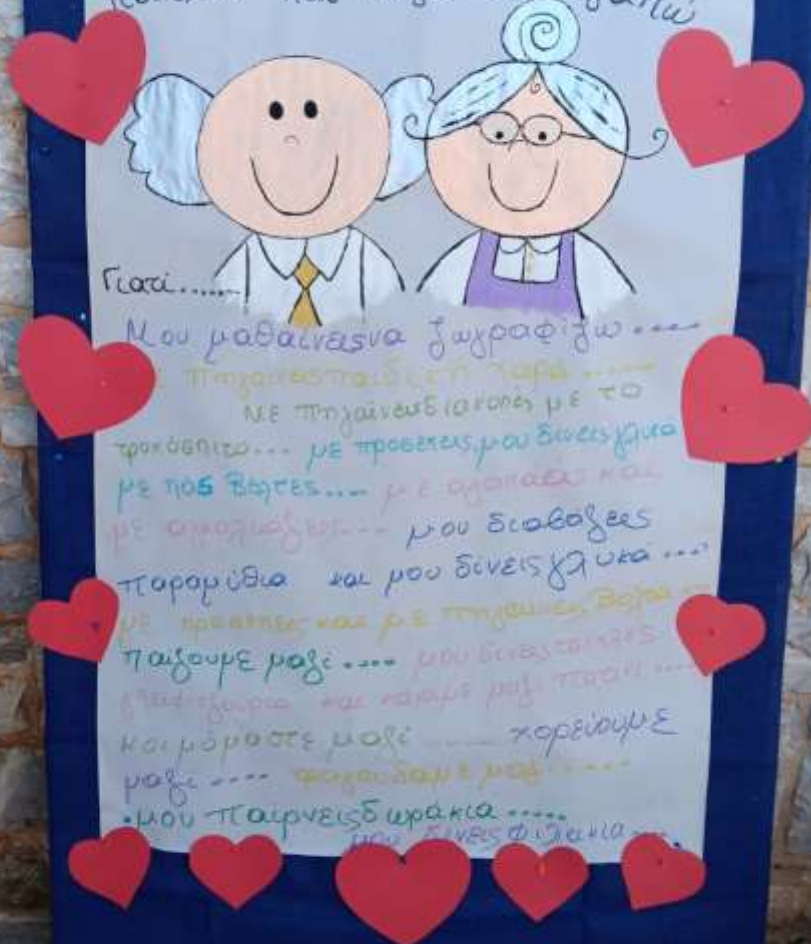 και σ' αγαπώ
Γιατί......
Μου μαθαίνεις να ζωγραφίζω ....
πηγαίνεις παιδική χαρά .....
Με πηγαίνεις διακοπές με το
τροχόσπιτο... με προσέχεις, μου δίνεις γλυκά
με πας βόλτες.... με αγαπάει και
με αγκαλιάζεις.... μου διαβάζεις
παραμύθια και μου δίνεις γλυκά ....
με προσέχεις και με πηγαίνεις βόλτα
παίζουμε μαζί .... μου δίνεις
και κάνουμε μαζί ....
κοιμόμαστε μαζί ...... χορεύουμε
μαζί .... τραγουδάμε μαζί ......
•μου παίρνεις δωράκια .....
μου δίνεις φιλάκια ....